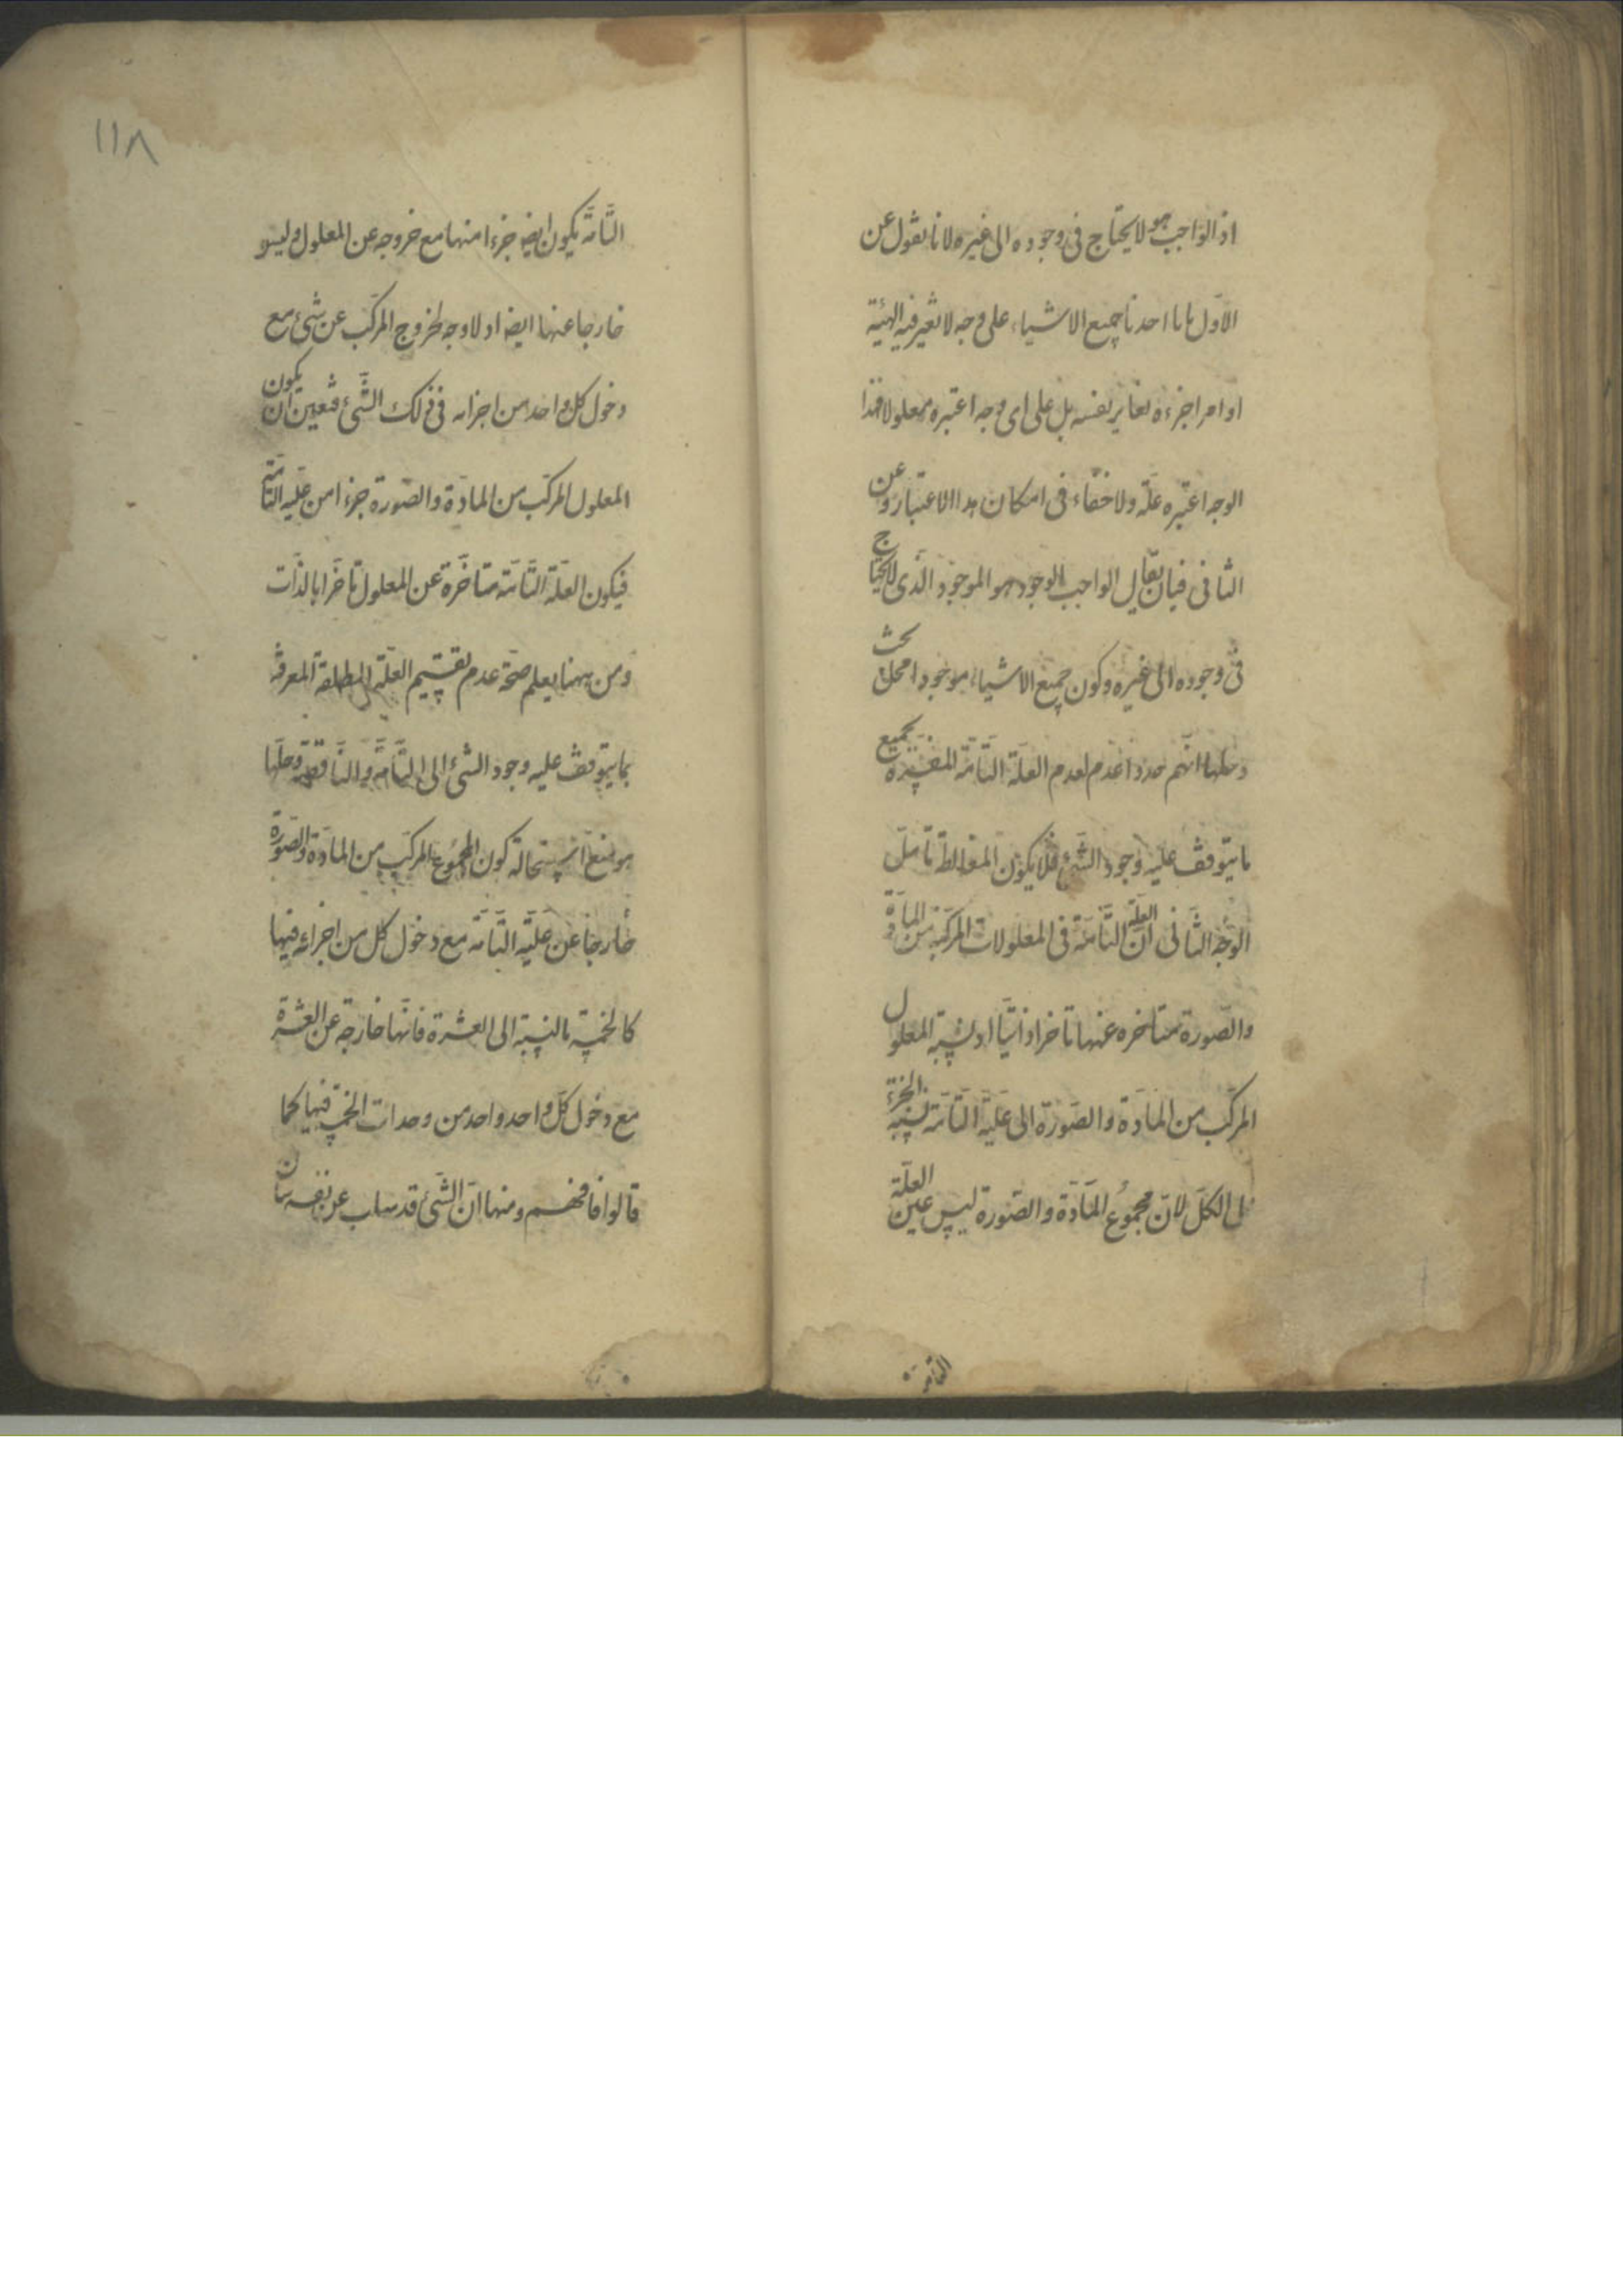 اذ الواجب هو لا يحتاج فى وجوده الى غيره لانا نقول عن
الاوّل بانا اخذنا جميع الاشياء على وجه لا نعتبر فيه الهيئة
او امرا جزءه يغاير نفسه بل على اى وجه اعتبره معلولا فهذا
الوجه اعتبره علّة ولا خفاء فى امكان هذا الاعتبار وعن
الثانى فبان يقال الواجب الوجود هو الموجود الّذى لا يحتاج
فى وجوده الى غيره وكون جميع الاشياء موجودا محل بحث
وحلها انّهم حددا عدم لعدم العلّة التّامّة المفسّرة بجميع
ما يتوقف عليه وجود الشّىء فلا يكون المغالطة تأمّل
الوجه الثّانى انّ العلّة التّامّة فى المعلولات المركّبة من المادّة
والصّورة متأخره عنها تأخرا ذاتيّا اذ نسبة المعلول
المركّب من المادّة والصّورة الى علّية التّامّة نسبة الجزء
الى الكلّ لانّ مجموع المادّة والصّورة ليس عين العلّة
التامة
١١٨
التّامّة يكون ايضا جزءا منها مع خروجه عن المعلول وليس
خارجا عنها ايضا اذ لا وجه لخروج المركّب عن شىء مع
دخول كل واحد من اجزائه فى ذلك الشّىء فتعين ان يكون
المعلول المركّب من المادّة والصّورة جزءا من علّيه التّامّة
فيكون العلّة التّامّة متأخّرة عن المعلول تأخّرا بالذّات
ومن ههنا يعلم صحّة عدم تقسيم العلّة المطلقة المعرفة
بما يتوقف عليه وجود الشىء الى التّامّة والنّاقصة وحلّها
هو منع استحالة كون المجموع المركّب من المادّة والصّورة
خارجا عن علّيه التّامّة مع دخول كل من اجزائه فيها
كالخمسة بالنسبة الى العشرة فانّها خارجة عن العشرة
مع دخول كلّ واحد واحد من وحدات الخمسة فيها كما
قالوا فافهم ومنها انّ الشّىء قد يسلب عن نفسه بان